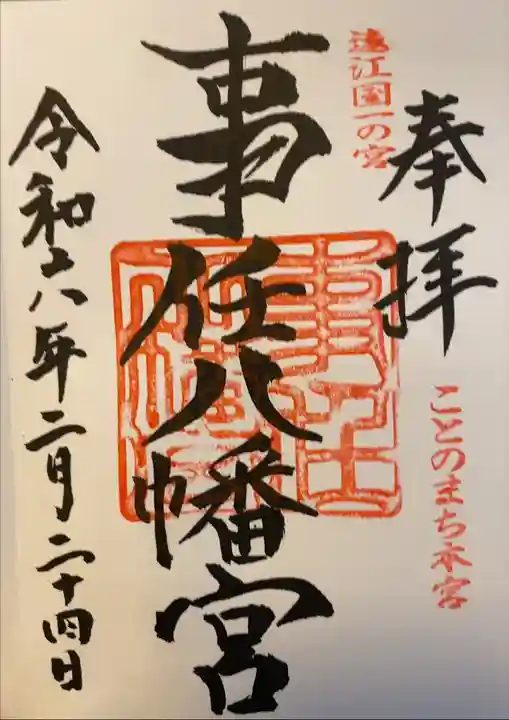 奉拝
遠江国一の宮
ことのまち本宮
事任八幡宮
令和六年二月二十四日